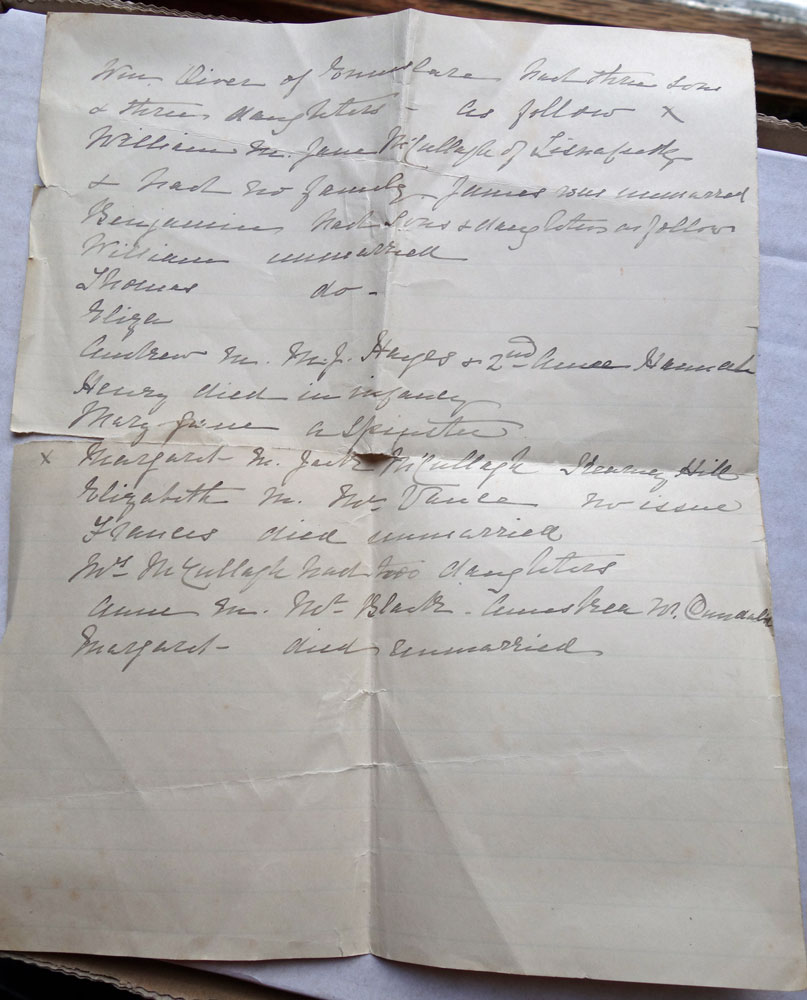 Wm. Oiver of had three sons
& three daughters - as follow x
William m. Jane McCullagh of
& had no family James was unmarred
Benjamin had Sons & daughters as follow
William unmarried
Thomas do -
Eliza
Andrew m. M.J. Hayes & 2nd Annee Hannah
Henry died in infancy
Mary Jane a Spinster
x Margaret m. Jack McCullagh Kearney Hill
Elizabeth m. Mr. Vance no issue
Frances died unmarried
Mrs McCullagh had two daughters
Anne m. Mr. Black - Nr. Dundalk
Margaret - died unmarried